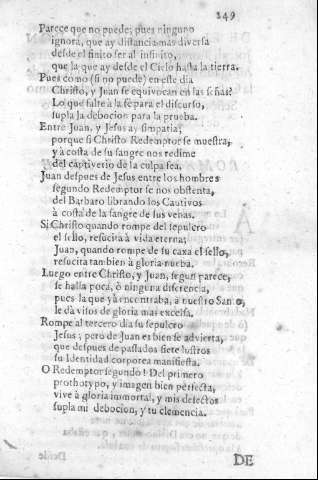 249
Parece que no puede; pues ninguno
ignora, que ay distancia mas diversa
desde el finito ser al infinito,
que la que ay desde el Cielo hasta la tierra.
Pues como (si no puede) en este dia
Christo, y Juan se equivocan en las señas?
Lo que falte à la fè para el discurso,
supla la debocion para la prueba.
Entre Juan, y Jesus ay simpatia;
porque si Christo Redemptor se muestra,
y à costa de su sangre nos redime
del captiverio de la culpa fea.
Juan despues de Jesus entre los hombres
segundo Redemptor se nos obstenta,
del Barbaro librando los Cautivos
à costa de la sangre de sus venas.
Si Christo quando rompe del sepulcro
el sello, resucita à vida eterna;
Juan, quando rompe de su caxa el sello,
resucita tambien à gloria nueba.
Luego entre Christo, y Juan, segun parece,
se halla poca, ò ninguna diferencia,
pues la que yà encontraba, à nuestro Santo,
le dà visos de gloria mas excelsa.
Rompe al tercero dia su sepulcro
Jesus; pero de Juan es bien se advierta,
que despues de passados siete lustros
su Identidad corporea manifiesta.
O Redemptor segundo! Del primero
prothotypo, y imagen bien perfecta,
vive à gloria immortal, y mis defectos
supla mi debocion, y tu clemencia.
DE